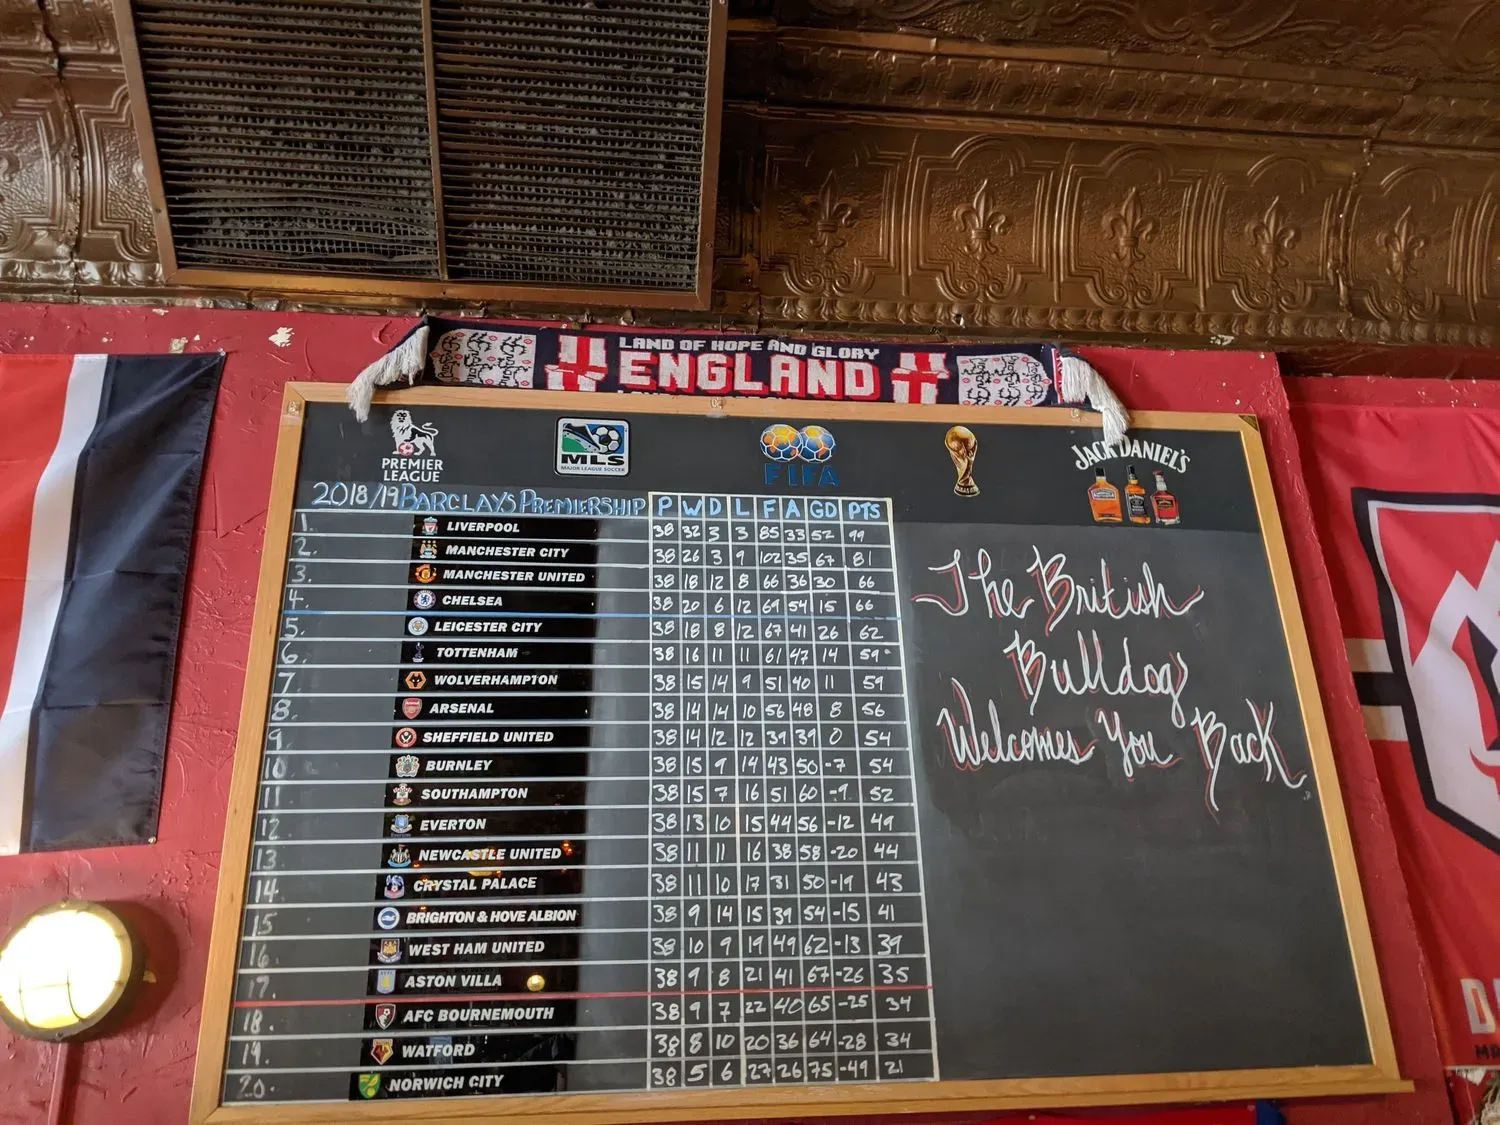 LAND OF HOPE AND GLORY
ENGLAND
PREMIER
LEAGUE
MLS
MAJOR LEAGUE SOCCER
FIFA
JACK DANIEL'S
2018/19 BARCLAYS PREMIERSHIP P W D L F A GD PTS
1. LIVERPOOL 38 32 3 3 85 33 52 99
2. MANCHESTER CITY 38 26 3 9 102 35 67 81
3. MANCHESTER UNITED 38 18 12 8 66 36 30 66
4. CHELSEA 38 20 6 12 69 54 15 66
5. LEICESTER CITY 38 18 8 12 67 41 26 62
6. TOTTENHAM 38 16 11 11 61 47 14 59
7. WOLVERHAMPTON 38 15 14 9 51 40 11 59
8. ARSENAL 38 14 14 10 56 48 8 56
9. SHEFFIELD UNITED 38 14 12 12 39 39 0 54
10. BURNLEY 38 15 9 14 43 50 -7 54
11. SOUTHAMPTON 38 15 7 16 51 60 -9 52
12. EVERTON 38 13 10 15 44 56 -12 49
13. NEWCASTLE UNITED 38 11 11 16 38 58 -20 44
14. CRYSTAL PALACE 38 11 10 17 31 50 -19 43
15. BRIGHTON & HOVE ALBION 38 9 14 15 39 54 -15 41
16. WEST HAM UNITED 38 10 9 19 49 62 -13 39
17. ASTON VILLA 38 9 8 21 41 67 -26 35
18. AFC BOURNEMOUTH 38 9 7 22 40 65 -25 34
19. WATFORD 38 8 10 20 36 64 -28 34
20. NORWICH CITY 38 5 6 27 26 75 -49 21
The British
Bulldog
Welcomes You Back